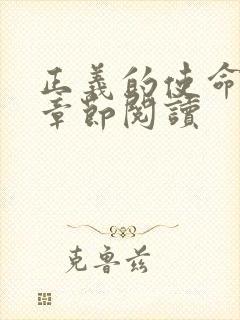 正義的使命
章節閱讀
克魯茲